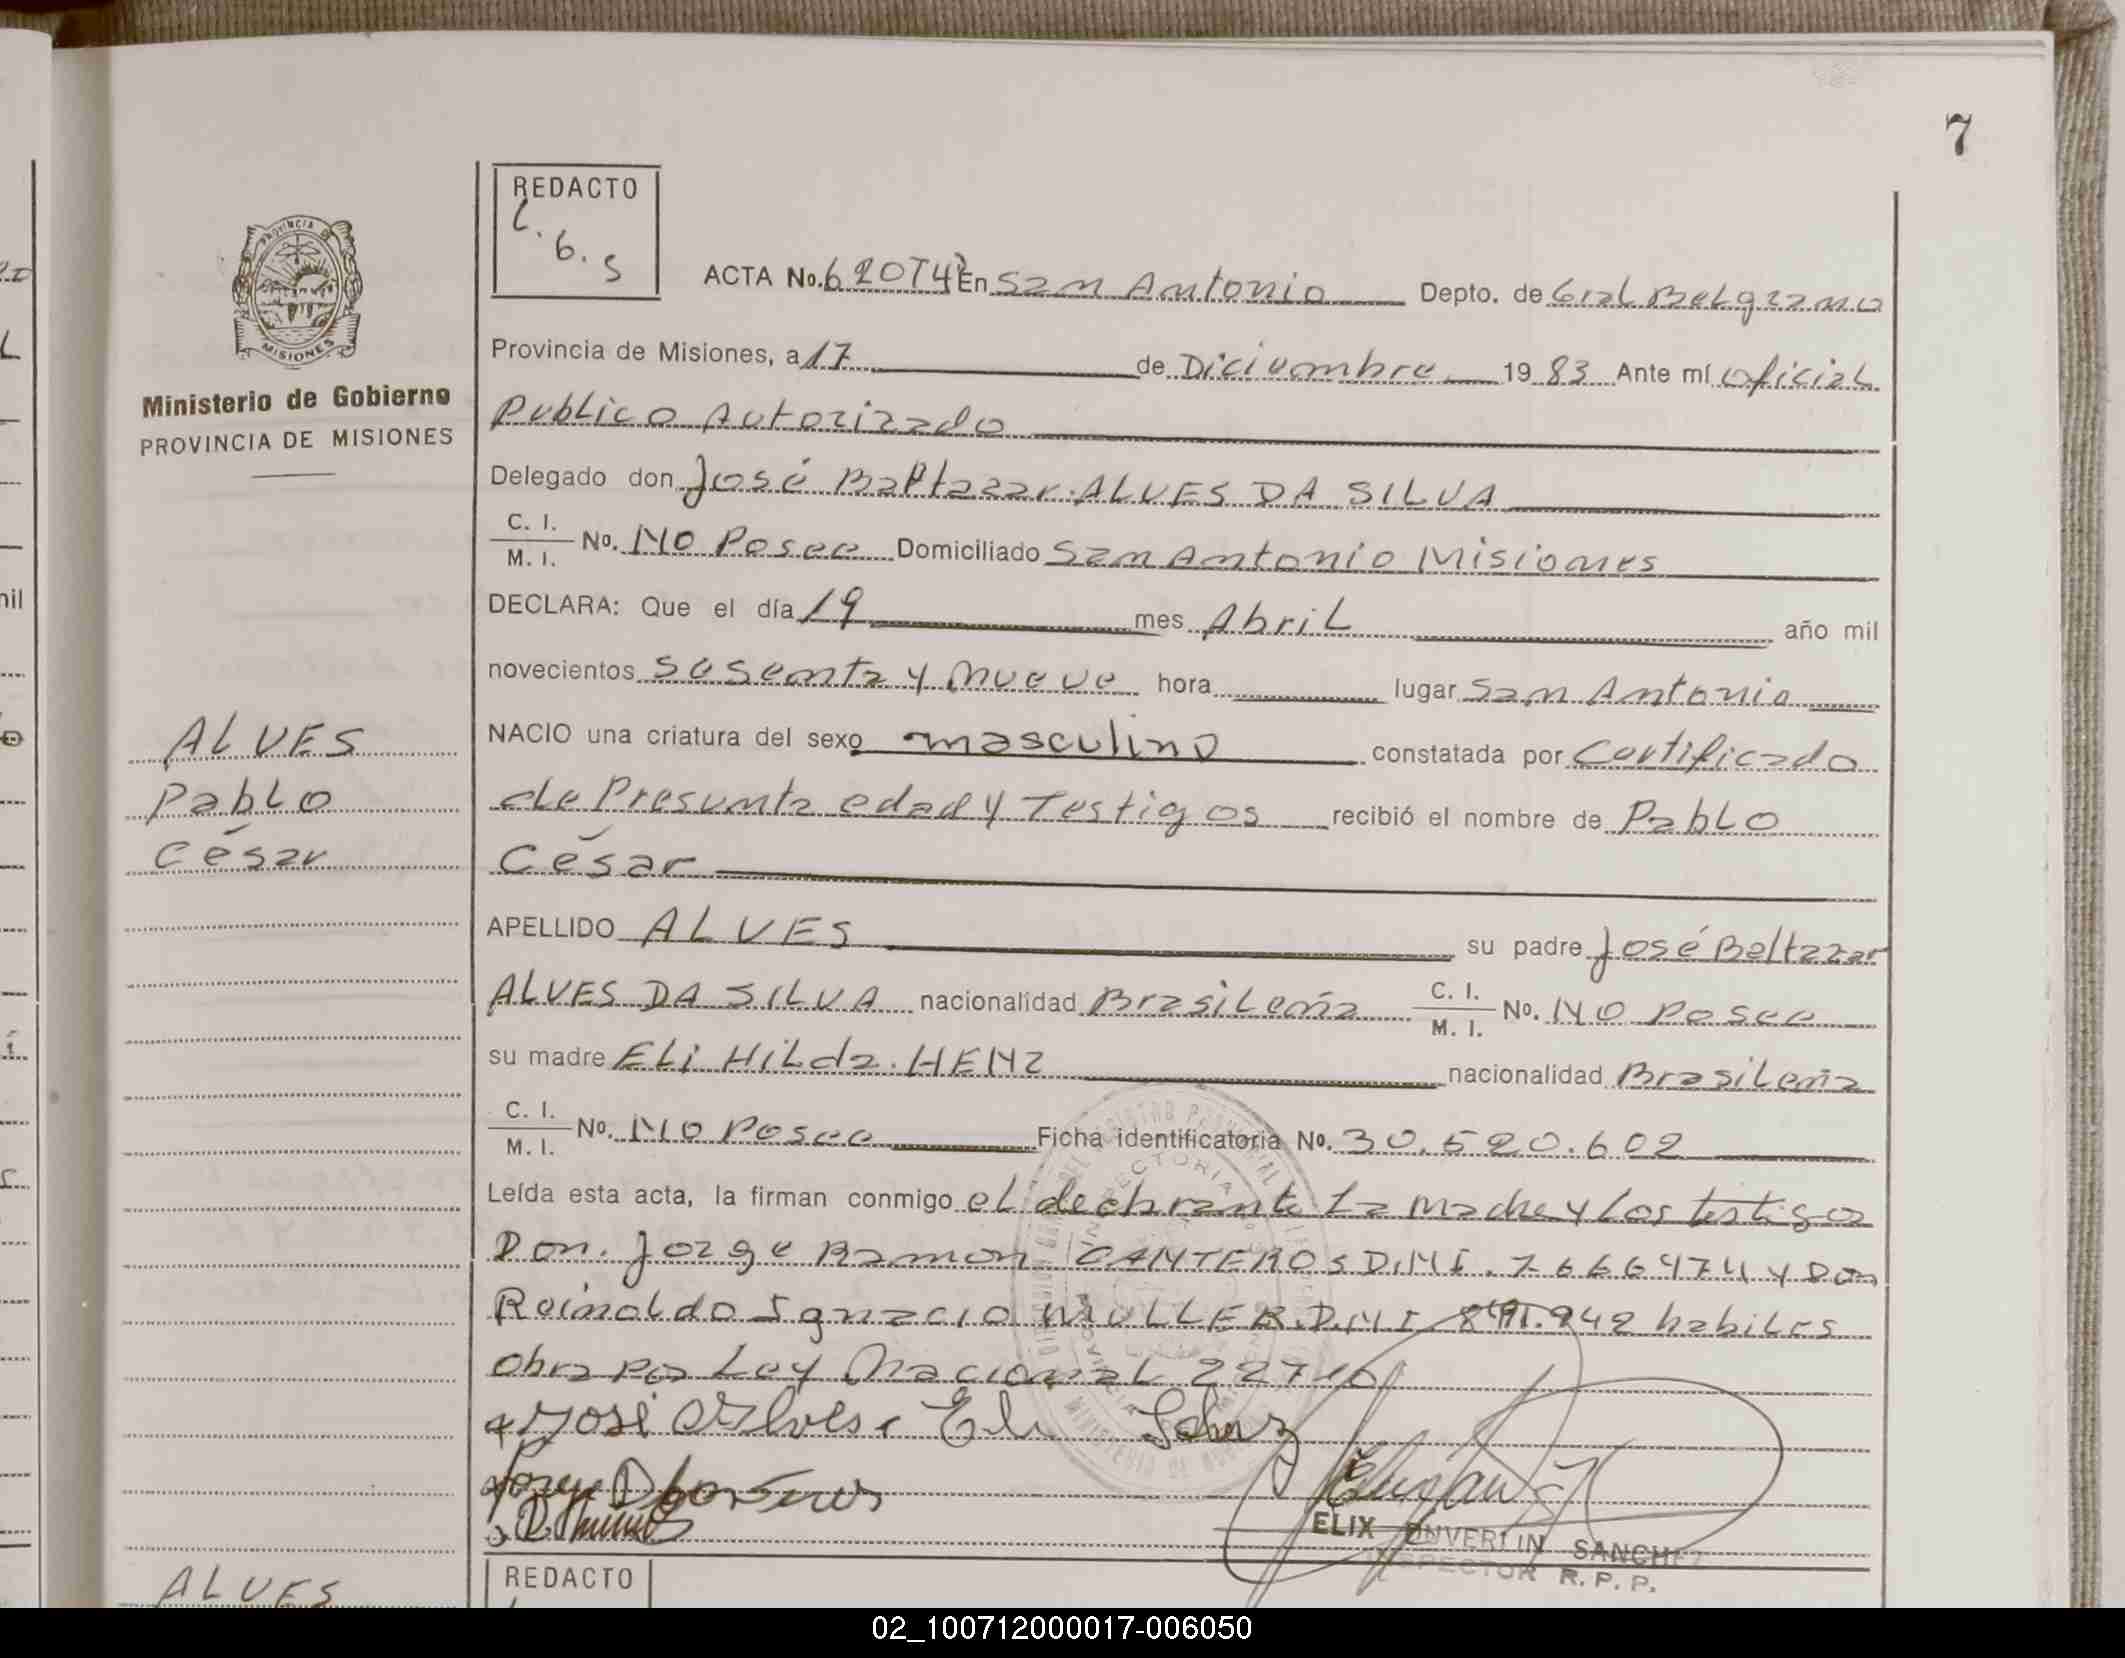 7
REDACTO
L. 6. S
ACTA No. 620T4º En San Antonio Depto. de Gral Belgrano
PROVINCIA DE
MISIONES
Provincia de Misiones, a 17 de Diciembre 19 83 Ante mí oficial
Ministerio de Gobierno
PROVINCIA DE MISIONES
Publico Autorizado
Delegado don José Baltazar. ALVES DA SILVA
C. I.
M. I. No. No Posee Domiciliado San Antonio Misiones
DECLARA: Que el día 19 mes Abril año mil
novecientos sesenta y nueve hora lugar San Antonio
NACIO una criatura del sexo masculino constatada por Certificado
ALVES
Pablo
César
de Presunta edad y Testigos recibió el nombre de Pablo
César
APELLIDO ALVES su padre José Baltazar
ALVES DA SILVA nacionalidad Brasileña C. I.
M. I. No. No Posee
su madre Eli Hilda. HENZ nacionalidad Brasileña
C. I.
M. I. No. No Posee Ficha identificatoria No. 30.520.602
Leída esta acta, la firman conmigo el declarante La Madre y Los testigos
Don. Jorge Ramon CANTEROS D.N.I. 7.666474 y Don
Reinaldo Ignacio MULLER. D.N.I 8491.942 habiles
Obra por Ley Nacional
José Alves Eli
ELIX SANCHEZ
INSPECTOR R. P. P.
REDACTO
ALVES
02_100712000017-006050